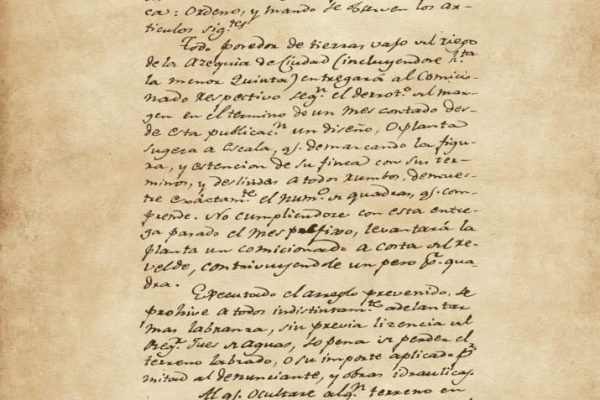 ca: Ordeno, y mando se observen los ar-
ticulos sig.tes
Todo poredor de tierras vajo el riego
de la Azequia de Ciudad (incluyendore h.ta
la menor Quinta) entregará al Comicio-
nado respectivo seg.n el derrot.o al mar-
gen en el termino de un mes contado des-
de esta publicac.n un diseño, o planta
sugeta a escala, q.e demarcando la figu-
ra, y estencion de su finca con sus ter-
minos, y deslindes a todos rumbos, demues-
tre exáctam.te el num.o de quadras, q.e com-
prende. No cumpliendore con esta entre-
ga pasado el mes prefixo, levantará la
planta un comicionado a costa del re-
velde, contrivuyendole un pero p.r qua-
dra.
Executado el arreglo prevenido, se
prohive a todos indistintam.te adelantar
mas labranza, sin previa lizencia del
Reg.r Jues de aguas, so pena de perder el
terreno labrado, o su importe aplicado p.r
mitad al denunciante, y obras idraulicas.
Al q.e ocultare alg.n terreno en